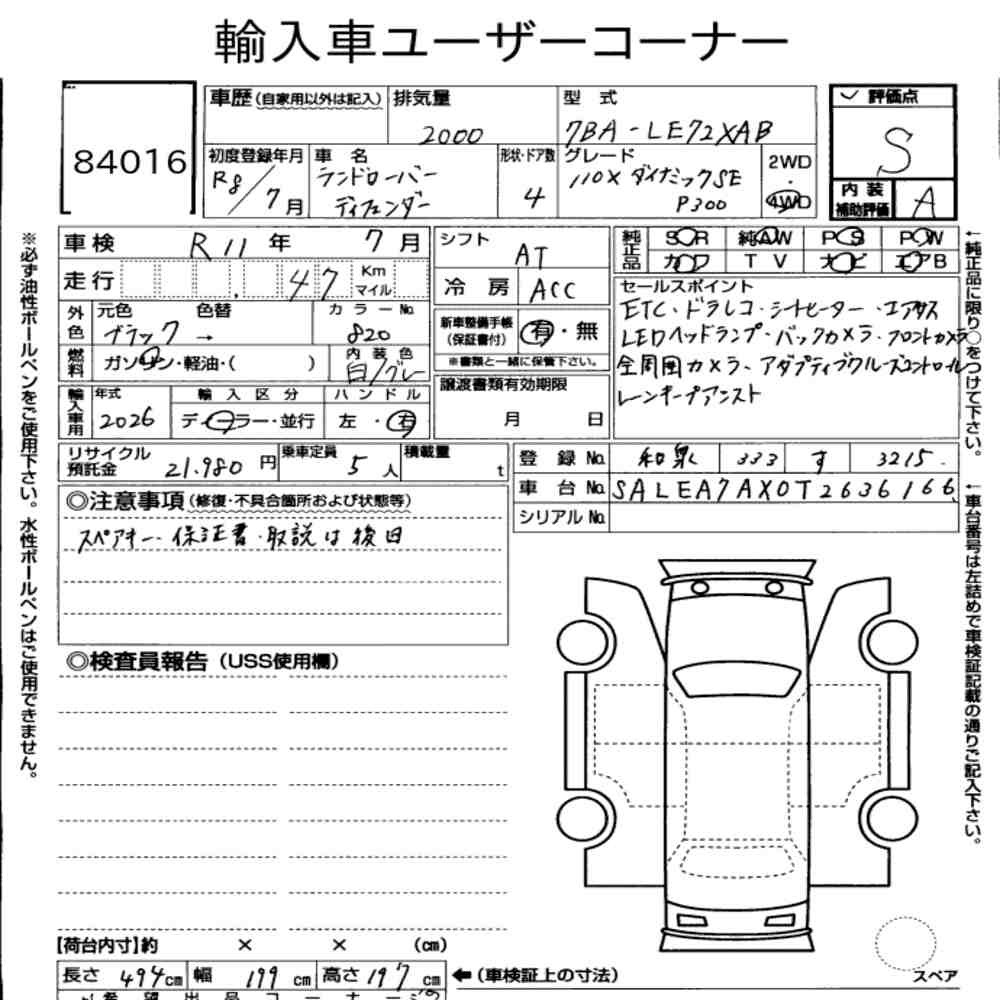 輸入車ユーザーコーナー
84016
車歴(自家用以外は記入)
排気量
2000
型 式
7BA-LE72XAB
評価点
S
内装補助評価
A
初度登録年月
R8/7月
車 名
ランドローバー
ディフェンダー
形状・ドア数
4
グレード
110X ダイナミックSE
P300
2WD
・
4WD
車検 R11年 7月
走行 47 Km マイル
シフト AT
冷房 ACC
純正品
S◯R 純AW PS PW
カワ TV ナビ エアB
セールスポイント
ETC・ドラレコ・シートヒーター・エアサス
LEDヘッドランプ・バックカメラ・フロントカメラ
全周囲カメラ、アダプティブクルーズコントロール
レーンキープアシスト
外色
元色 色替 カラーNo.
ブラック → 820
燃料
ガソリン・軽油・( )
内装色
白/グレー
新車整備手帳
(保証書付)
有・無
※書類と一緒に保管下さい。
輸入車用
年式
2026
輸入区分
ディーラー・並行
ハンドル
左・右
譲渡書類有効期限
月 日
リサイクル預託金 21.980円
乗車定員 5人
積載量 t
登録No. 和泉 333 す 3215
車台No. SALEA7AX0T2636166
シリアルNo.
◎注意事項(修復・不具合箇所および状態等)
スペアキー、保証書・取説は後日
◎検査員報告(USS使用欄)
【荷台内寸】約 × × (cm)
長さ 494cm 幅 199cm 高さ 197cm
←(車検証上の寸法)
スペア
※必ず油性ボールペンをご使用下さい。水性ボールペンはご使用できません。
←純正品に限り○をつけて下さい。
←車台番号は左詰めで車検証記載の通りご記入下さい。